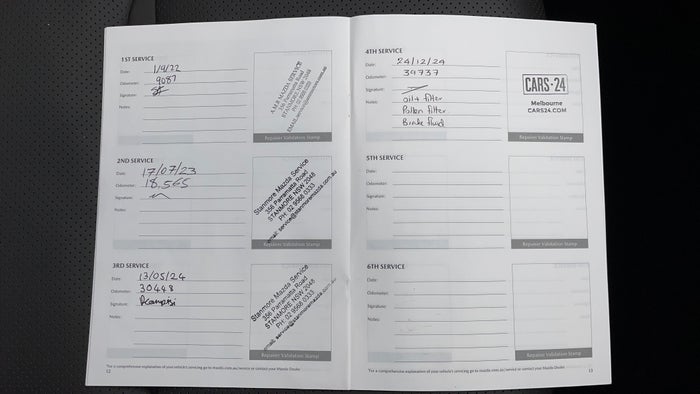 1ST SERVICE
Date: 1/9/22
Odometer: 9087
Signature:
Notes:
A.M.R MAZDA SERVICE
Parramatta Road
STANMORE NSW 2048
Repairer Validation Stamp
2ND SERVICE
Date: 17/07/23
Odometer: 18,565
Signature:
Notes:
Stanmore Mazda Service
356 Parramatta Road
STANMORE NSW 2048
PH: 02 9568 0333
email: service@stanmoremazda.com.au
Repairer Validation Stamp
3RD SERVICE
Date: 13/05/24
Odometer: 30448
Signature:
Notes:
Stanmore Mazda Service
356 Parramatta Road
STANMORE NSW 2048
PH: 02 9568 0333
email: service@stanmoremazda.com.au
Repairer Validation Stamp
For a comprehensive explanation of your vehicle's servicing go to mazda.com.au/service or contact your Mazda Dealer
12
4TH SERVICE
Date: 24/12/24
Odometer: 39737
Signature:
Notes: oil + filter
Pollen filter
Brake fluid
CARS-24
Melbourne
CARS24.COM
Repairer Validation Stamp
5TH SERVICE
Date:
Odometer:
Signature:
Notes:
Repairer Validation Stamp
6TH SERVICE
Date:
Odometer:
Signature:
Notes:
Repairer Validation Stamp
For a comprehensive explanation of your vehicle's servicing go to mazda.com.au/service or contact your Mazda Dealer
13